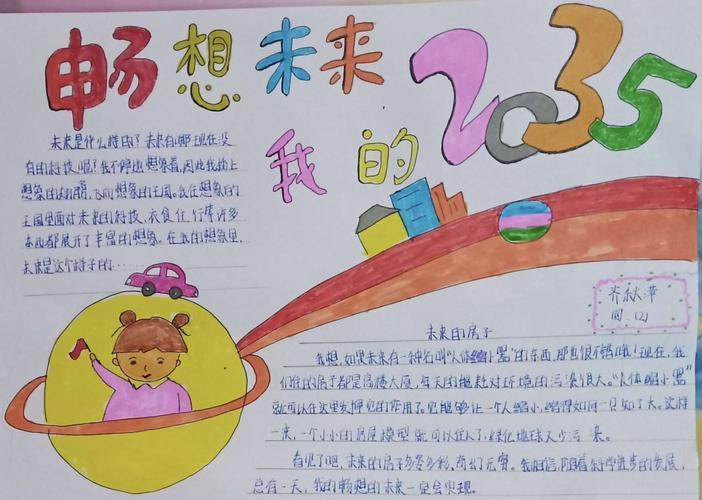 畅想未来
我的
2035
未来是什么样的？未来有哪些现在没
有的科技呢？我不停地想象着，因此我插上
想象的翅膀，飞向想象的王国。我在想象的
王国里面对未来的科技，衣食住行等许多
东西都展开了丰富的想象。在我的想象里，
未来是这个样子的……
齐秋萍
四(2)
未来的房子
我想，如果未来有一种名叫“人体缩小器”的东西，那也很不错哦！现在，我
们住的房子都是高楼大厦，与天的
对环境的污染很大。“人体缩小器”
就可以在这里发挥它的作用了。它能够让一个人缩小，缩得如同一只
大。这样
一来，一个小小的房屋模型就可以住人了，绿化地球又少污染。
看见了吧，未来的房子多姿多彩，奇幻无穷。我相信，随着科学进步的发展，
总有一天，我的畅想的未来一定会实现。